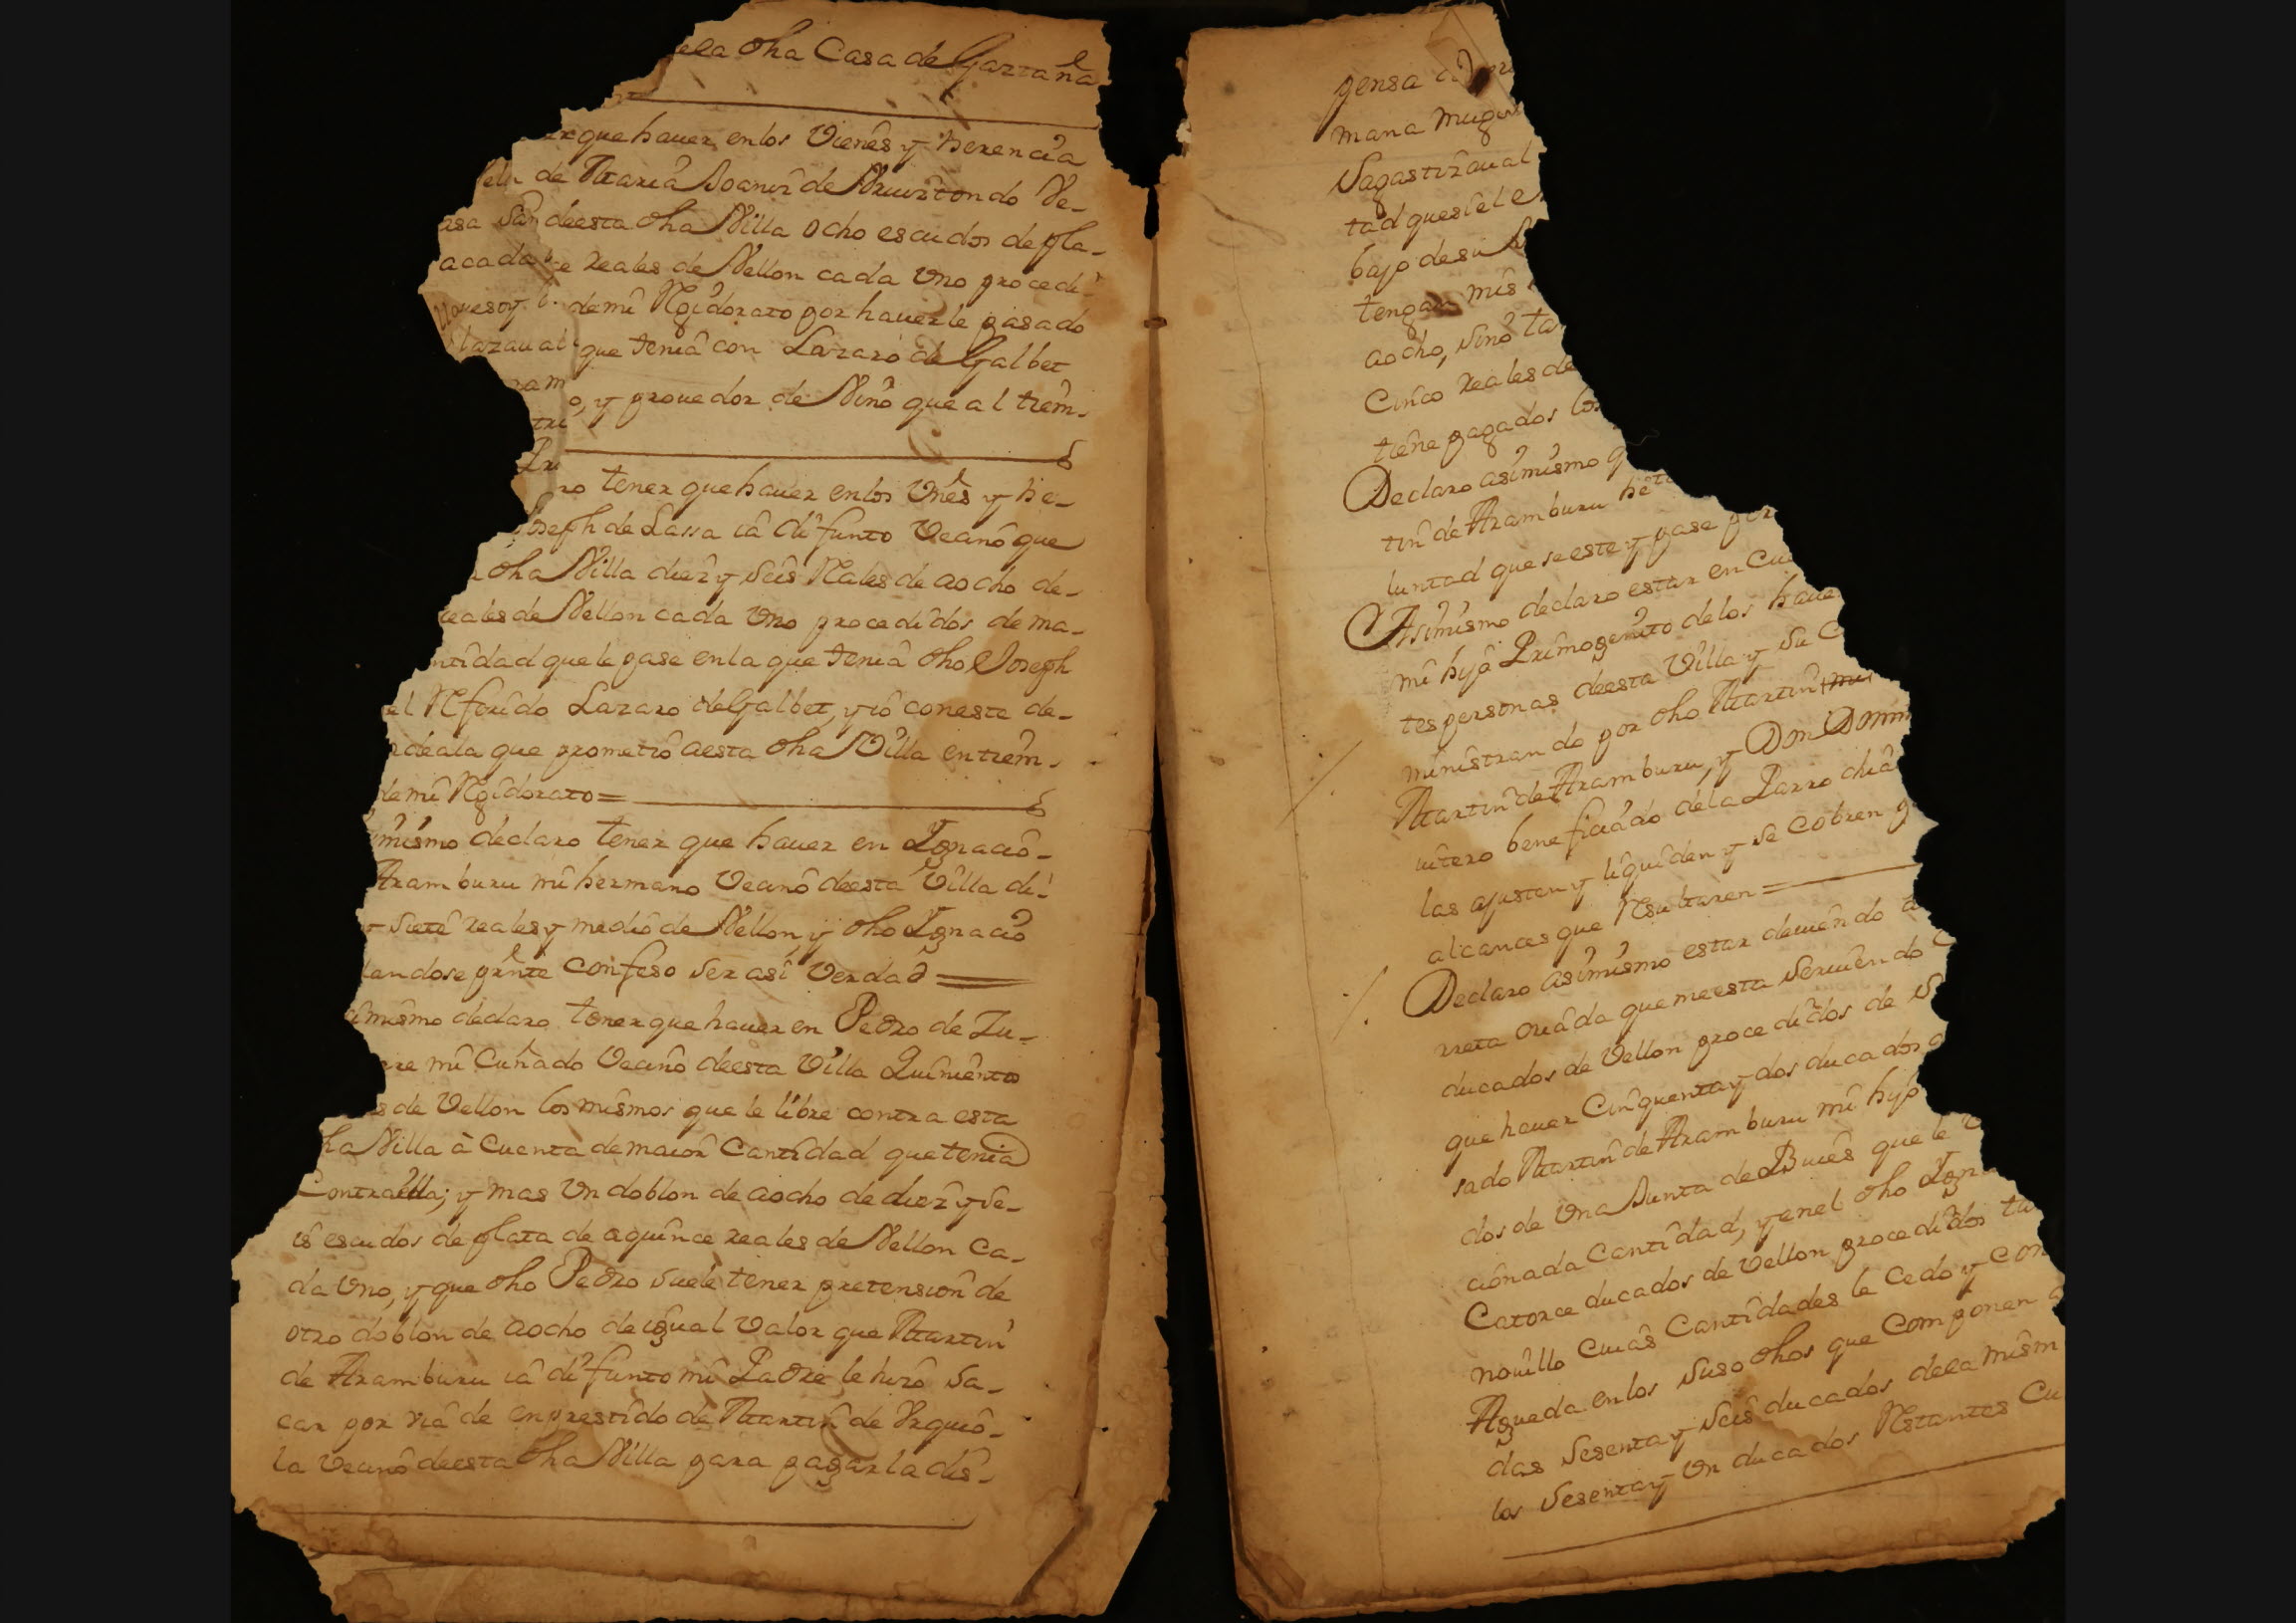 ela dha Casa de Gaztaña
que hauer en los Vienes y herencia
de Maria Joaniz de Vruiztondo Ve-
deesta dha Villa ocho escudos de pla-
reales de Vellon cada Vno procedi-
de mi Rexidorato por hauerle pasado
que tenia con Lazaro de Galbet
y prouedor de Vino que al tiem-
tener que hauer en los Vnes y he-
Joseph de Lassa ia difunto Vecino que
dha Villa diez y seis Rales de aocho de-
reales de Vellon cada Vno procedidos de ma-
ntidad que le pase en la que tenia dho Joseph
el Referido Lazaro de Galbet, y io con esta de-
que prometio a esta dha Villa en tiem-
de mi Rgidorato =
imismo declaro tener que hauer en Ignacio-
Aramburu mi hermano Vecino deesta Villa di-
siete reales y medio de Vellon, y dho Ignacio
landose prnte confeso ser asi Verdad =
imismo declaro tener que hauer en Pedro de Zu-
rre mi Cuñado Vecino deesta Villa Quinientos
s de Vellon los mismos que le libre contra esta
ha Villa à Cuenta de maior Cantidad que tenia
Contra ella; y mas Vn doblon de aocho de diez y se-
is escudos de plata de a quince reales de Vellon ca-
da Vno, y que dho Pedro suele tener pretension de
otro doblon de aocho de igual Valor que Martin
de Aramburu ia difunto mi Padre le hizo sa-
car por via de enprestido de Martin de Vrquio-
la Vecino deesta dha Villa para pagar la dis-
pensa
mana muger
Sagastizaual
tad que si el e
bajo de su
tengan mis
aocho, sino ta
Cinco reales de
tiene pagados los
Declaro asimismo q
tin de Aramburu he
luntad que se este y pase por
Asimismo declaro estar en Cue
mi hijo Primogenito de los haue
tes personas deesta Villa y su C
ministrando por dho Martin mi
Martin de Aramburu, y Don Domin
uitero beneficiado de la Parrochia
las ajusten y liquiden y se cobren p
alcances que Resultaren =
Declaro asimismo estar deuiendo a
rreta criada que me esta siruiendo
ducados de Vellon procedidos de S
que hauer Cinquenta y dos ducados
sado Martin de Aramburu mi hijo
dos de Vna Junta de Bueis que le
cionada Cantidad, y en el dho Ign
Catorce ducados de Vellon procedidos
nouillo Cuias Cantidades le Cedo y con
Agueda en los suso dhos que Componen
das Sesenta y seis ducados de la mism
los sesenta y Vn ducados Restantes Cu